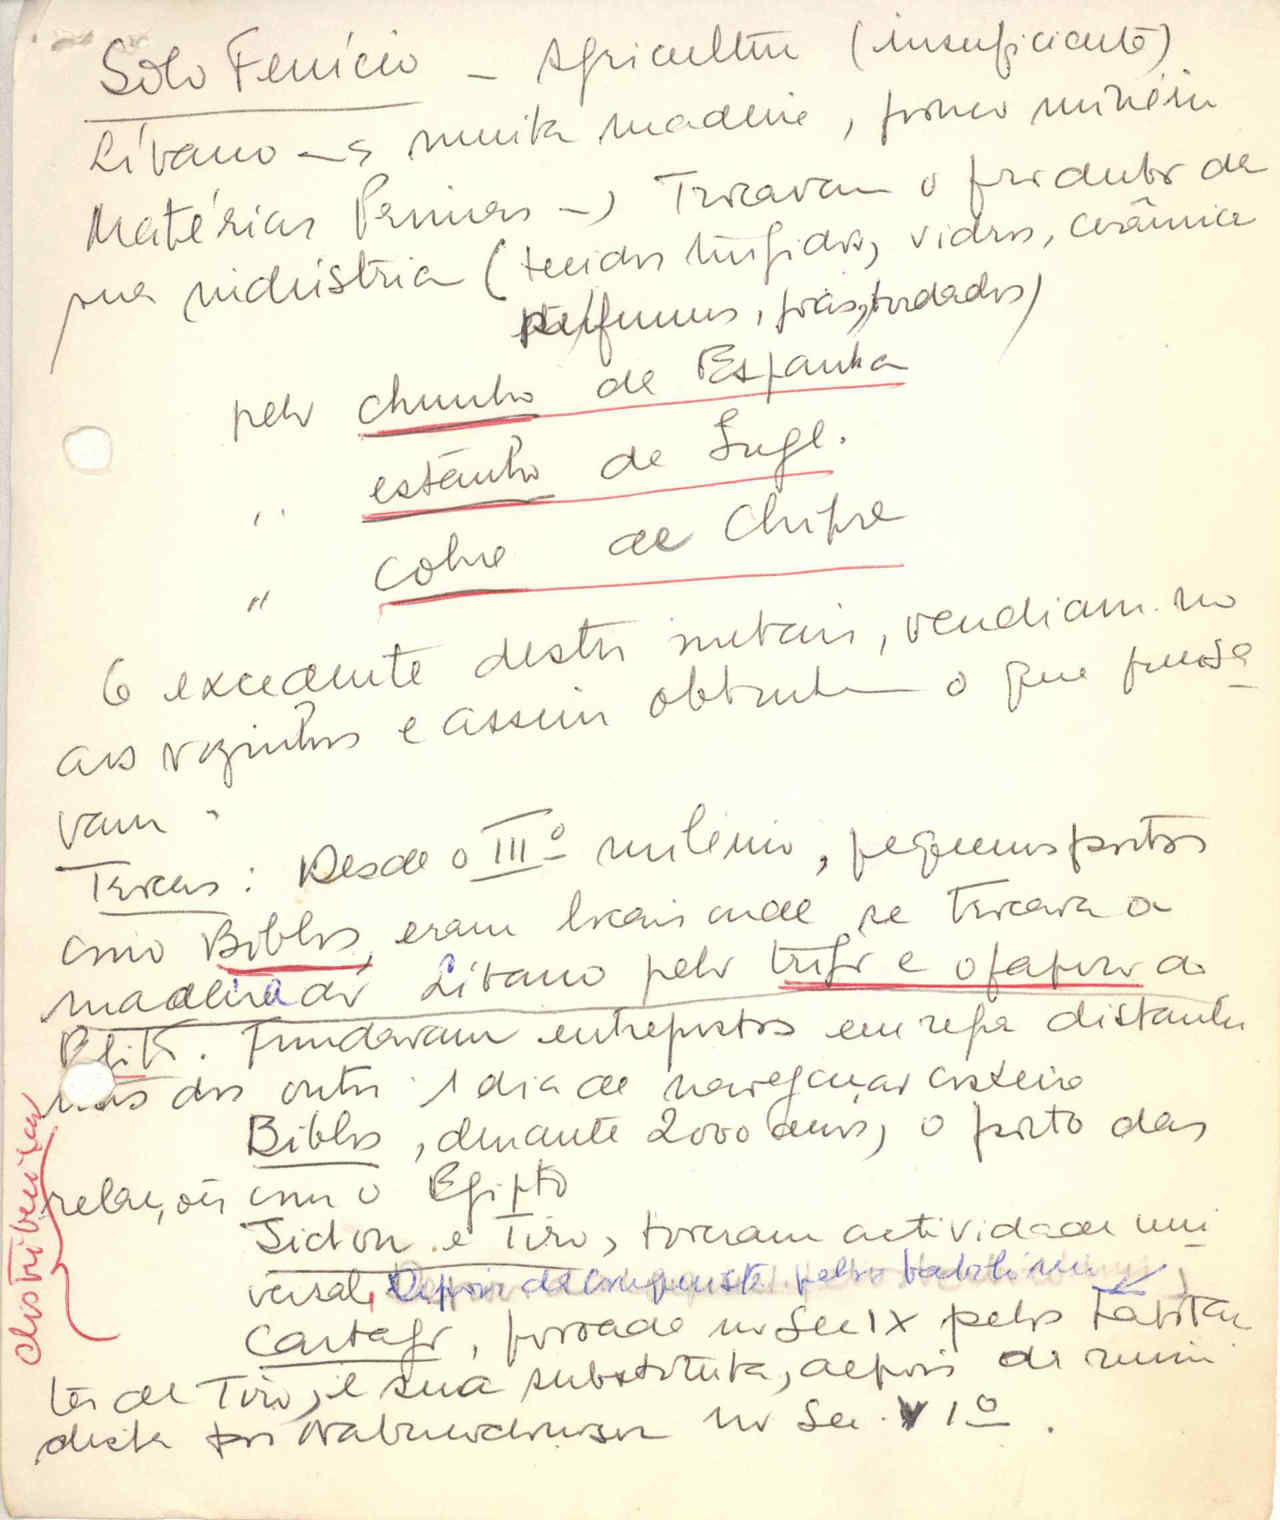 Solo Fenício – Agricultura (insuficiente)
Líbano → muita madeira, pouco minério
Matérias Primas → Trocavam o produto da
sua indústria (tecidos tingidos, vidros, cerâmica
perfumes, bordados)
pelo chumbo de Espanha
" estanho de Ingl.
" cobre de Chipre
O excedente destes metais, vendiam-no
aos vizinhos e assim obtinham o que precisa
vam.
Trocas: Desde o IIIº milénio, pequenos portos
como Biblos, eram locais onde se trocava a
madeira do Líbano pelo trigo e o papiro do
Egito. Fundavam entrepostos em regra distantes
uns dos outros 1 dia de navegação costeira
Biblos, durante 2000 anos, o porto das
relações com o Egipto
Sidon e Tiro, tiveram actividade uni
versal, Depois da conquista pelos babilónios
Cartago, fundada no Sec IX pelos habitan
tes de Tiro, é sua substituta, depois da ruina
desta por Nabucodonosor no Sec. VIº.
distribuição